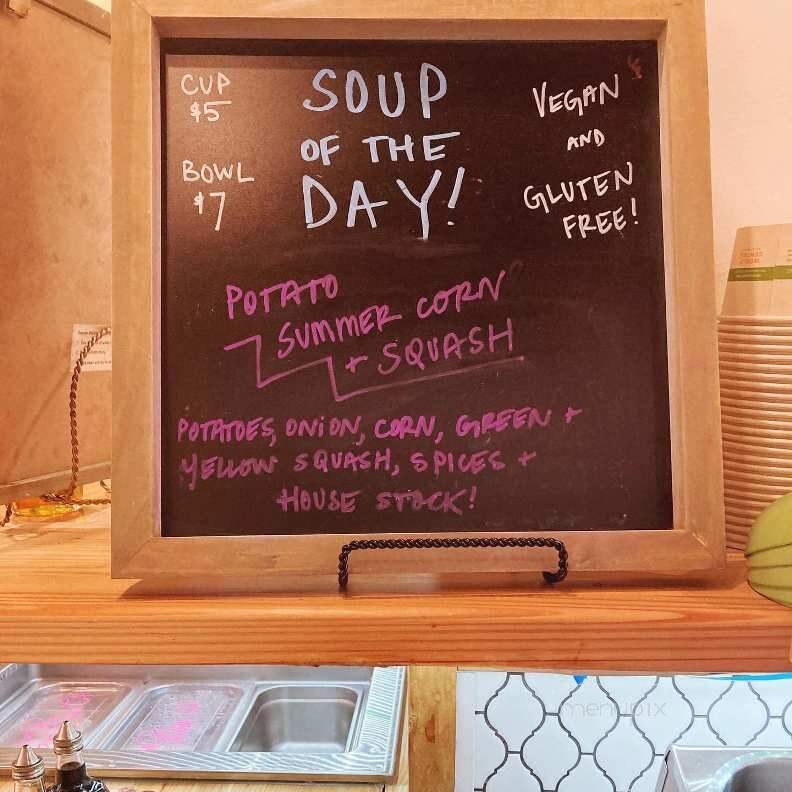 CUP
$5
BOWL
$7
SOUP
OF THE
DAY!
VEGAN
AND
GLUTEN
FREE!
POTATO
SUMMER CORN
+ SQUASH
POTATOES, ONION, CORN, GREEN +
YELLOW SQUASH, SPICES +
HOUSE STOCK!
menupix